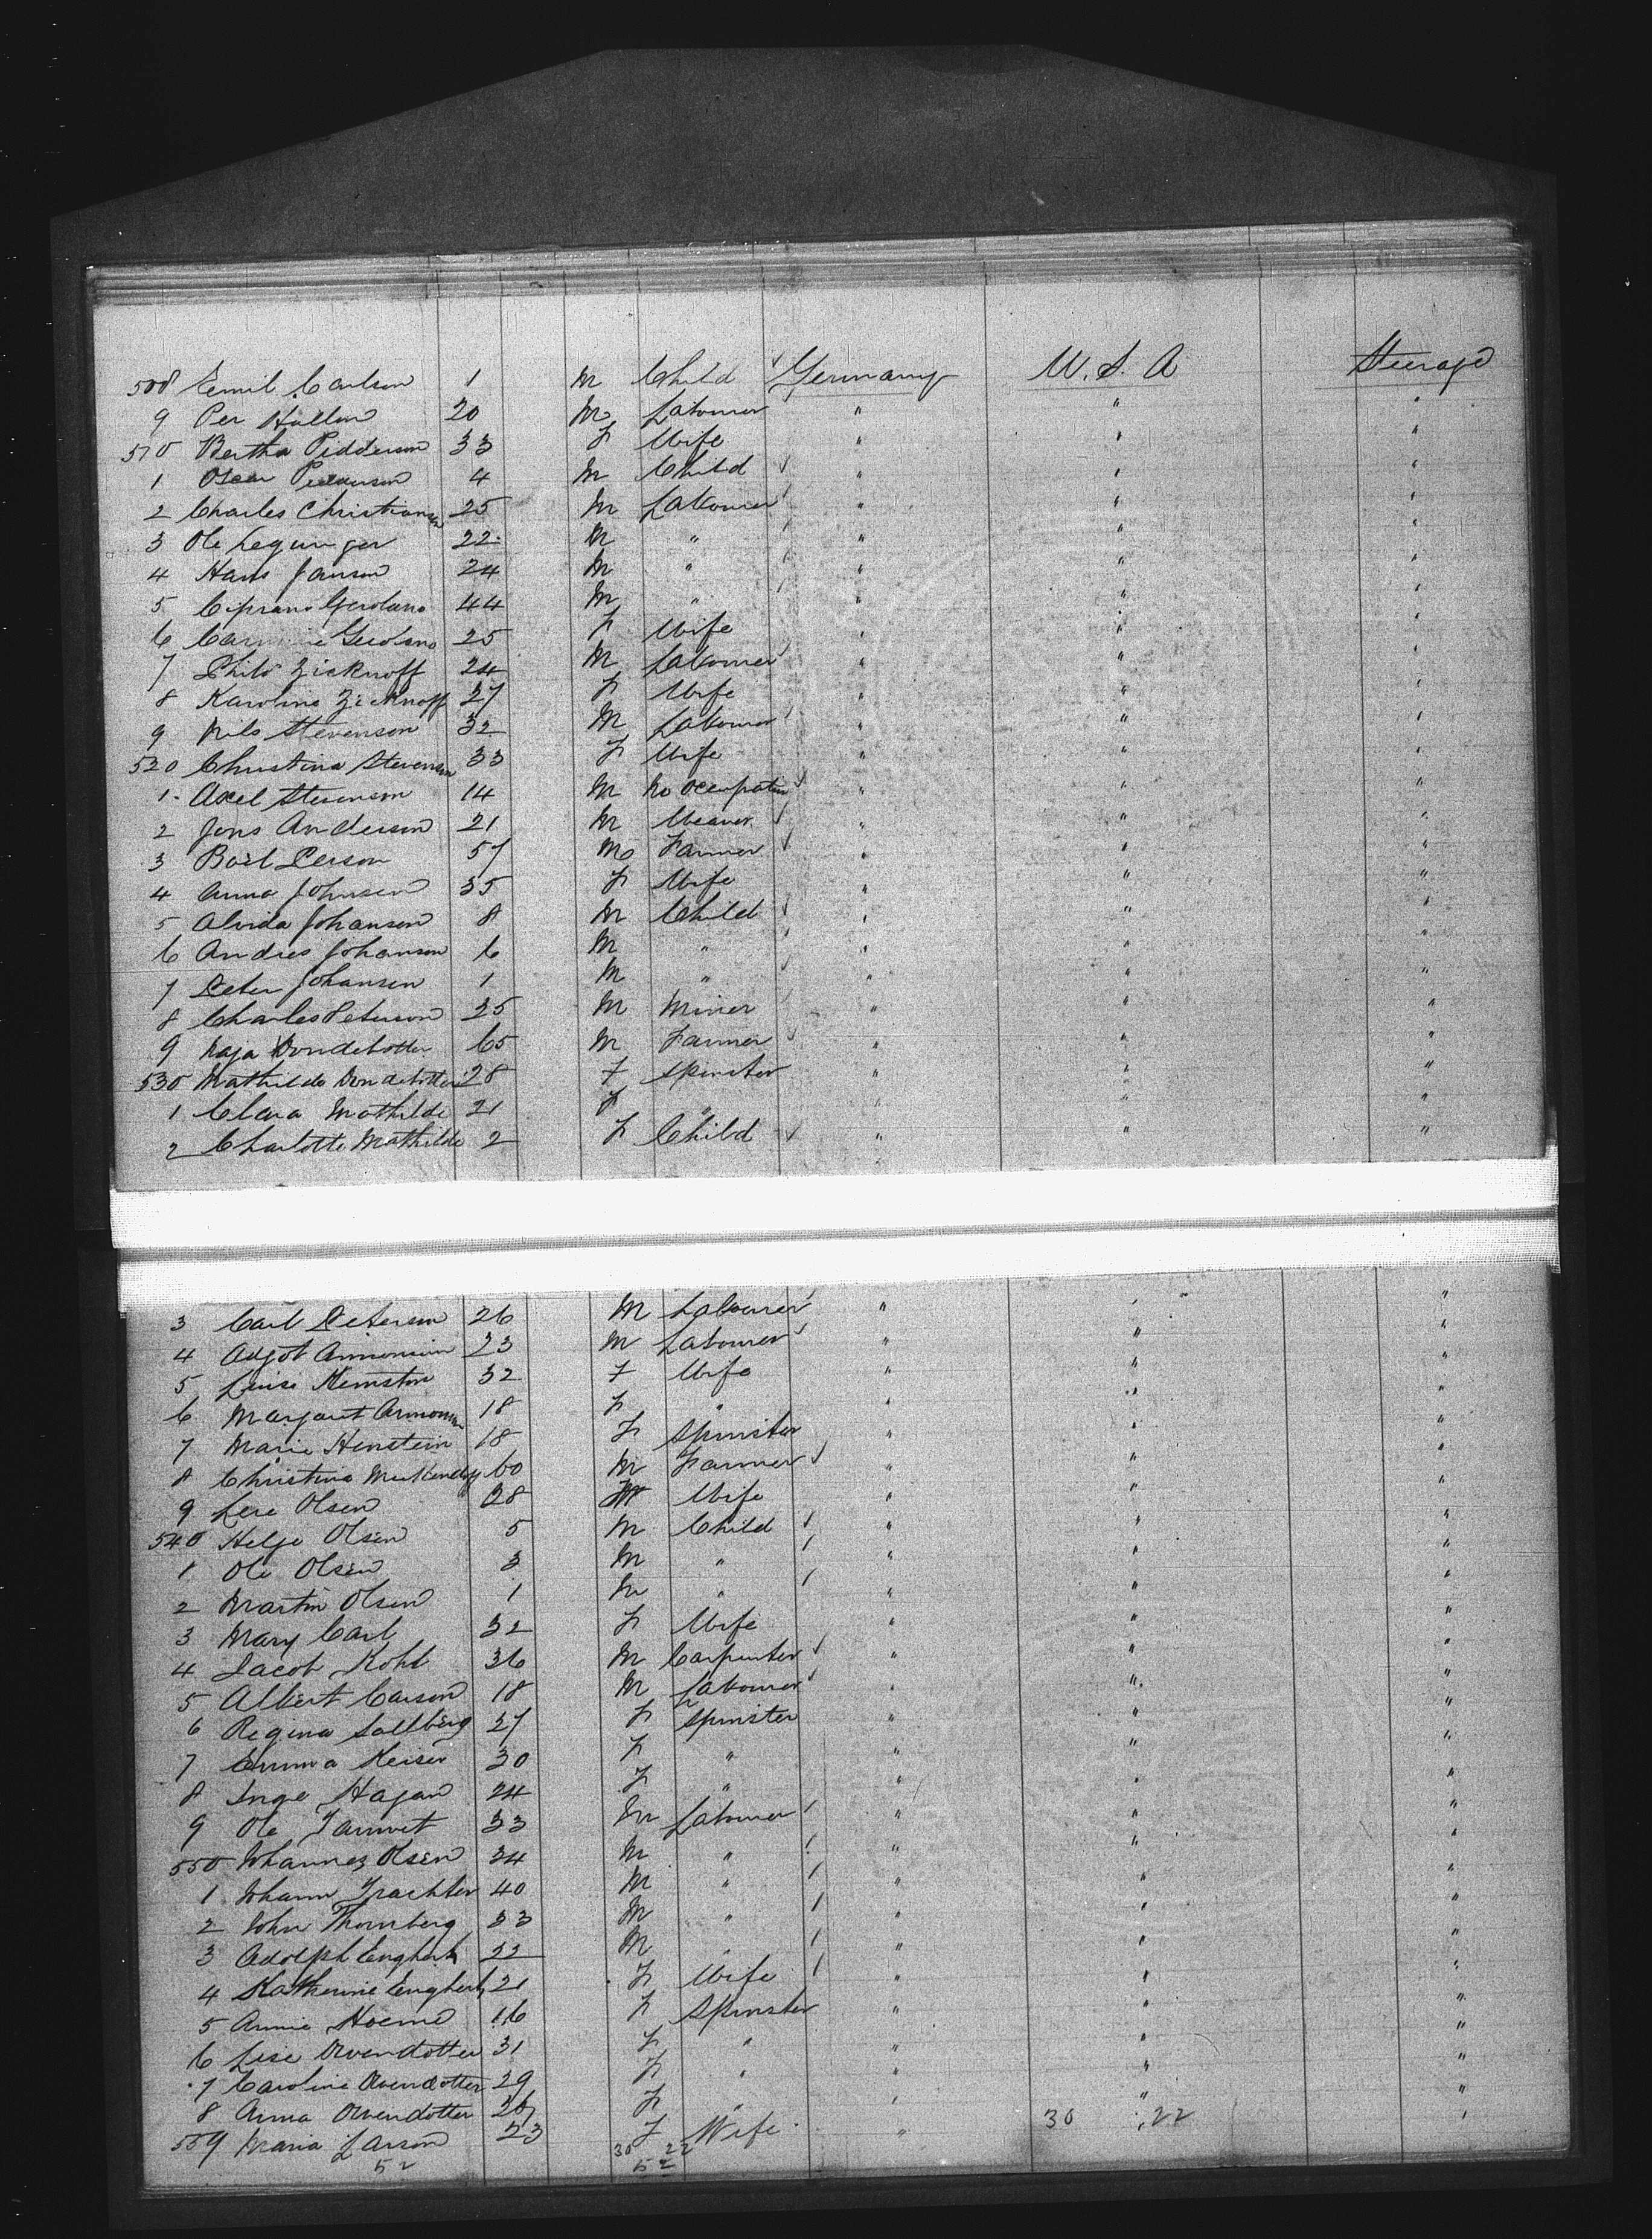 508 Emil Carlson 1 M Child Germany U. S. A Steerage
9 Per Hallin 20 M Labourer " " "
510 Bertha Pidderson 33 F Wife " " "
1 Oscar 4 M Child " " "
2 Charles Christiansen 25 M Labourer " " "
3 Ole 22 M " " " "
4 Hans Janson 24 M " " " "
5 Ciprano Gerolano 44 M " " " "
6 25 F Wife " " "
7 Zicknoff 24 M Labourer " " "
8 Karolina Zicknoff 27 F Wife " " "
9 Nils Stevenson 32 M Labourer " " "
520 Christina Stevenson 33 F Wife " " "
1 Axel Stevenson 14 M No Occupation " " "
2 Jons Anderson 21 M Weaver " " "
3 Person 57 M Farmer " " "
4 Anna Johnsen 35 F Wife " " "
5 Alvida Johanson 8 M Child " " "
6 Andres Johanson 6 M " " " "
7 Peter Johansen 1 M " " " "
8 Charles Peterson 25 M Miner " " "
9 65 M Farmer " " "
530 Mathilda 28 F Spinster " " "
1 Clara Mathilde 21 F " " " "
2 Charlotte Mathilde 2 F Child " " "
3 Carl Peterson 26 M Labourer " " "
4 23 M Labourer " " "
5 Luise 32 F Wife " " "
6 Margaret 18 F " " " "
7 Marie Henstein 18 F Spinster " " "
8 Christina 60 M Farmer " " "
9 Olsen 28 F Wife " " "
540 Helge Olsen 5 M Child " " "
1 Ole Olsen 3 M " " " "
2 Martin Olsen 1 M " " " "
3 Mary Carl 32 F Wife " " "
4 Jacob Kohl 36 M Carpenter " " "
5 Albert Carson 18 M Labourer " " "
6 Regina Sallberg 27 F Spinster " " "
7 Emma Keiser 30 F " " " "
8 Inge Hagan 24 F " " " "
9 Ole 33 M Labourer " " "
550 Johannes Olsen 34 M " " " "
1 Johann Trachter 40 M " " " "
2 John Thornberg 33 M " " " "
3 Adolph 22 M " " " "
4 Katherine 21 F Wife " " "
5 Annie 16 F Spinster " " "
6 Lise Ovendotter 31 F " " " "
7 Caroline Ovendotter 29 F " " " "
8 Anna Ovendotter 26 F " " " "
559 Maria Larson 23 F Wife " 30 22 "
52 30 22
52